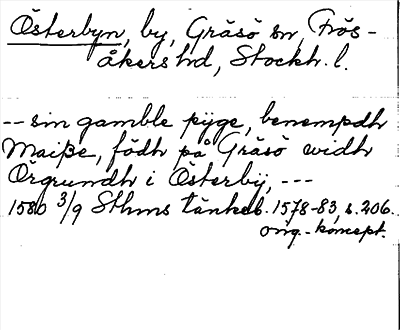 Österbyn, by, Gräsö sn, Frös-
åkers hd, Stockh. l.
-- sin gamble pijge, benempdh
Maiße, födh på Gräsö widh
Örgrundh i Österbÿ, ---
1580 3/9 Sthms tänkeb. 1578-83, s. 206.
orig.-koncept.